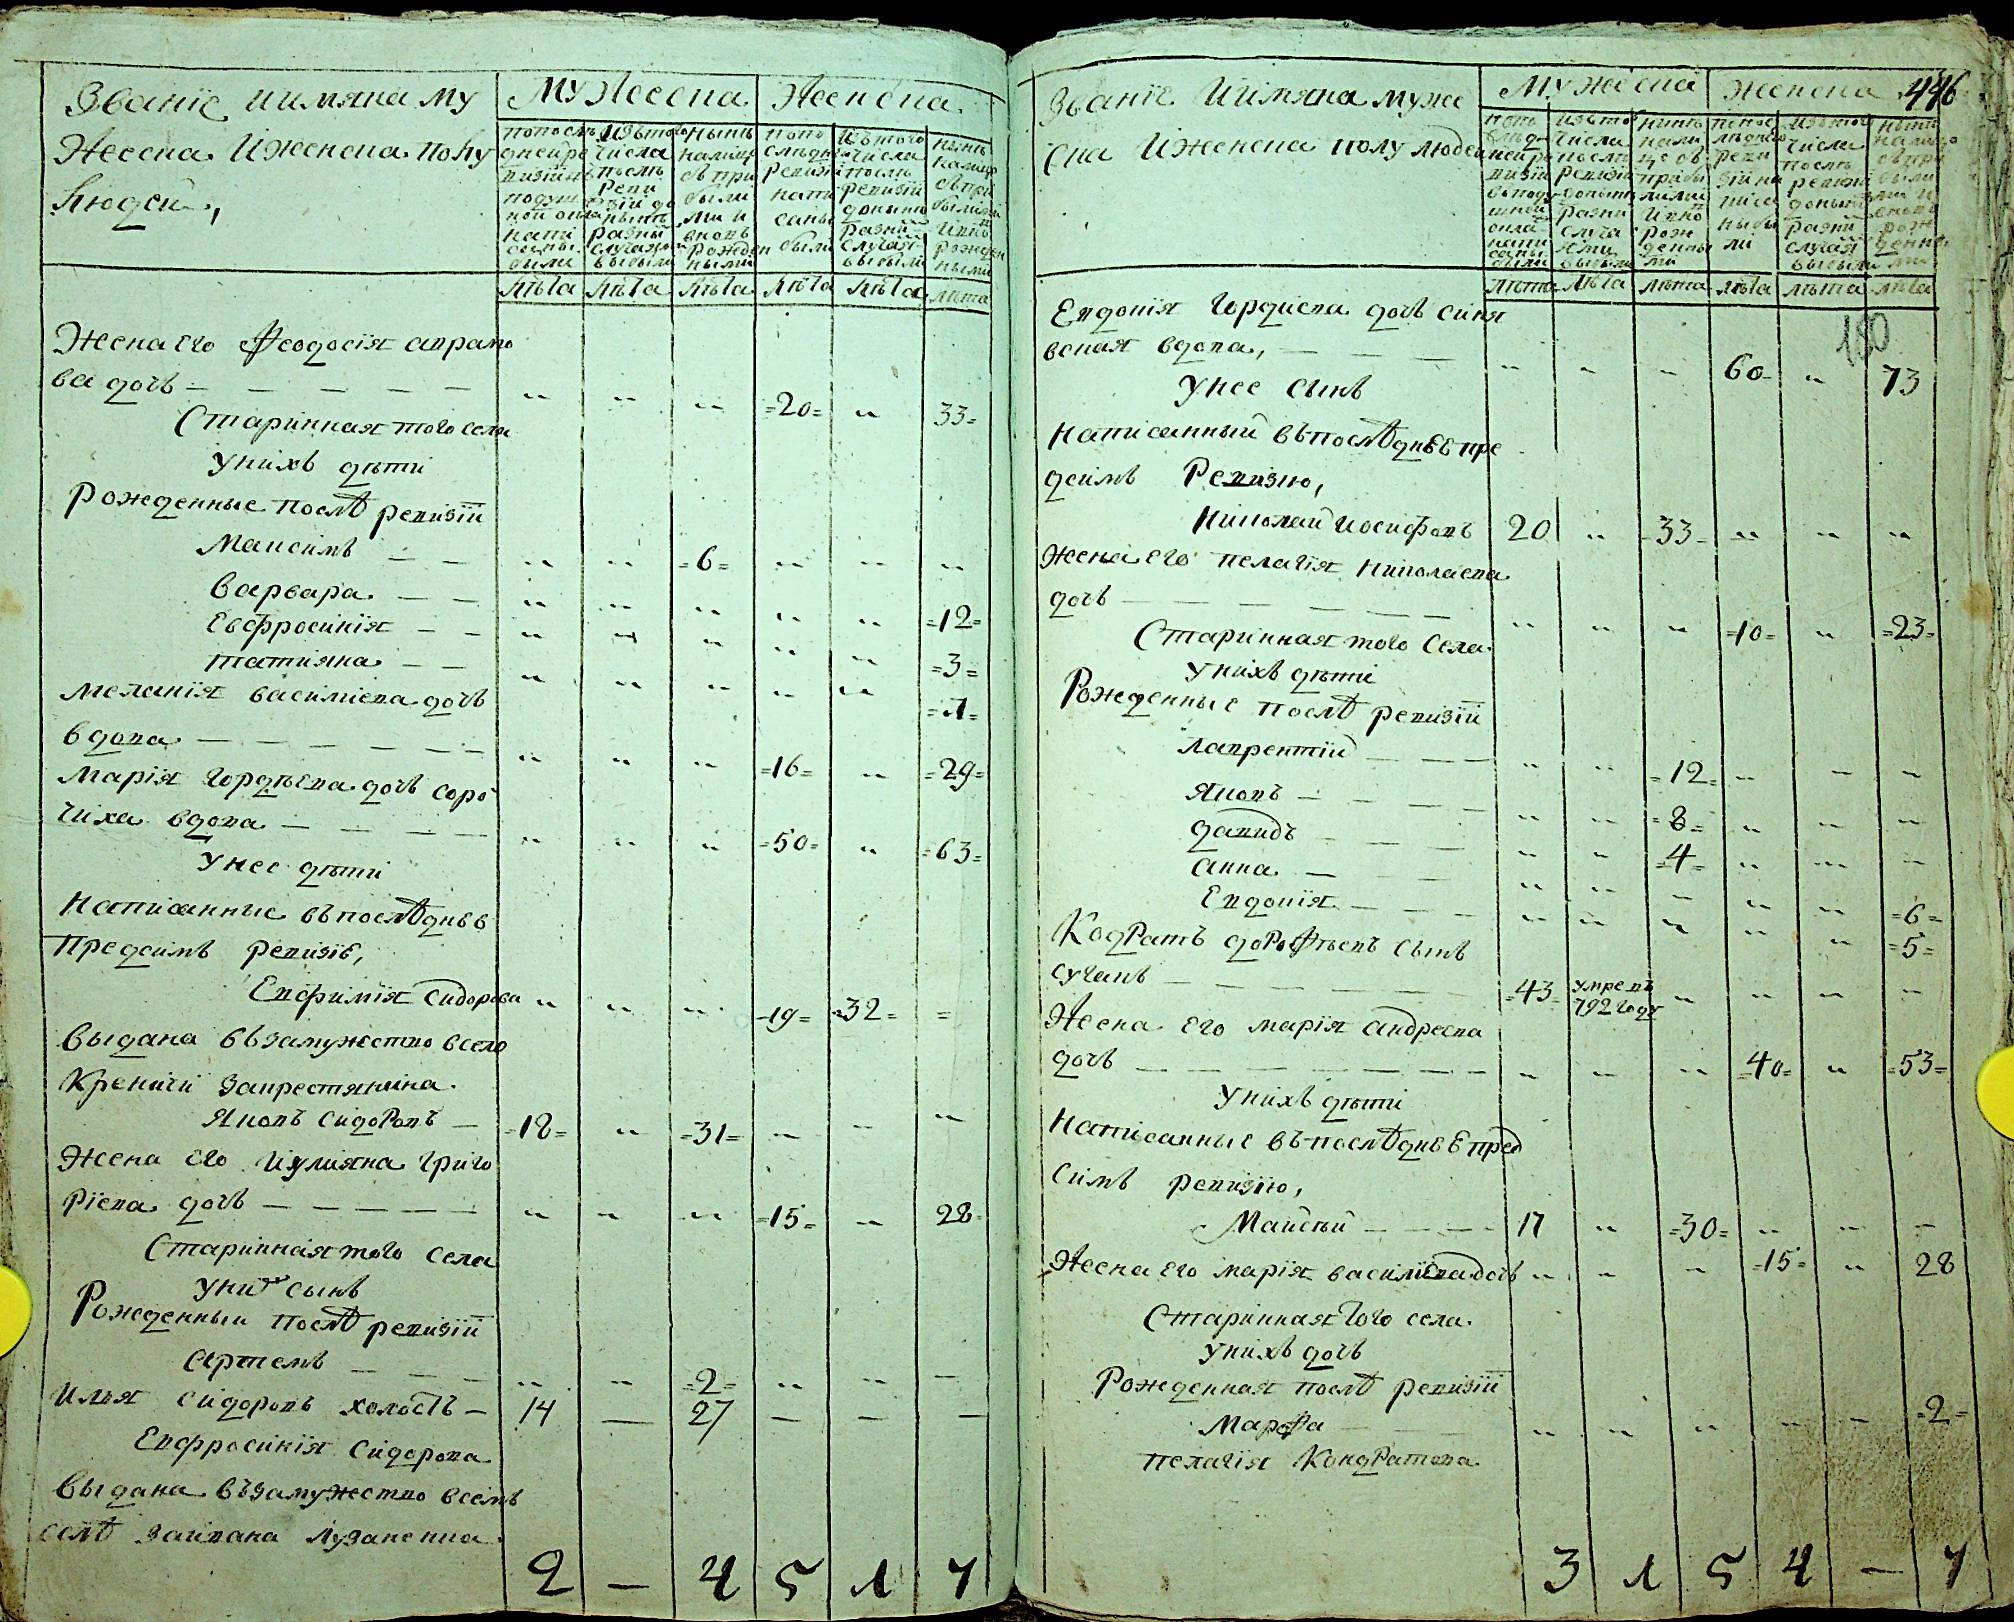 Званіе иимяна му
жеска Иженска полу
людей,
Мужеска
Женска
попослѣ
дней ре
визіи въ
подуш
ной окла
напи
саны
были
Изъ того
числа
послѣ
Реви
зіи до
нынѣ
разны
случаями
выбыли
нынѣ
налице
съ при
были
ми и
вновь
рожден
ными
попо
слѣдн
ревизіи
напи
саны
были
Изъ того
числа
послѣ
ревизіи
донынѣ
разны
случая
выбыли
нынѣ
налице
съ при
былыми
ивнов
рожден
ными
лѣта лѣта лѣта лѣта лѣта лѣта
Жена его Феодосія авра
ва дочь — — — — — „ „ „ =20= „ 33=
Старинная того села
Унихъ дѣти
Рожденные послѣ ревизіи
Максимъ — — „ „ =6= „ „ „
Варвара — — „ „ „ „ „ =12=
Евфросинія — — „ „ „ „ „ =3=
татияна — — „ „ „ „ „ =1=
Меланія василіева дочь
вдова — — — — — — „ „ „ =16= „ =29=
Марія Гордѣева дочь соро
чиха вдова — — — — „ „ „ =50= „ =63=
Унее дѣти
Написанные въпослѣднев
предсимъ ревизіе,
Евфимія Сидорова „ „ „ =19= =32= =
выдана възамужство всело
Кренич закрестянина
Яковъ Сидоровъ — =18= „ =31= „ „ „
Жена его Иулияна Григо
ріева дочь — — — — — „ „ „ =15= „ 28=
Старинная того села
Уних сынъ
Рожденныи послѣ ревизіи
Артемъ — — — „ „ =2= „ „ —
Илья Сидоровъ холостъ — 14 — 27 — — —
Евфросинія Сидорова
Выдана възамужство всемъ
селѣ заивана Лузаненка
2 — 4 5 1 7
446
Званіе Иимяна муже
ска Иженска полу людей
Мужеска
женска
попо
слѣд
ней ре
визіи
въподу
шной
окла
напи
саны
были
изъ того
числа
послѣ
ревизіи
донынѣ
разны
случа
ями
выбыли
нынѣ
нали
це съ
прибы
лыми
ивно
рож
денны
ми
попос
лѣдней
реви
зіи на
писа
ны бы
ли
изъ того
числа
послѣ
ревизіи
донынѣ
разны
случая
выбыли
нынѣ
налице
съпри
были
ми и
вновь
рож
денны
ми
лѣта лѣта лѣта лѣта лѣта лѣта
180
Евдокія Гордиева дочь синя
вская вдова, — — — „ „ „ 60 „ 73
Унее сынъ
Написанный въпослѣднѣе пре
дсимъ Ревизію,
Николай Иосифовъ 20 „ 33 „ „ „
Жена его пелагія Николаева
дочь — — — — — — „ „ „ =10= „ =23=
Старинная того Села
Унихъ дѣти
Рожденные послѣ ревизіи
Лаврентій — — — „ „ =12= „ — „
Яковъ — — — — „ „ =8= „ „ „
Давидъ — — — „ „ =4= „ „ „
анна — — — „ „ „ „ „ =6=
Евдокія — — — „ „ „ „ „ =5=
Кодратъ дорофѣевъ сынъ
сучакъ — — — — — =43= умре въ 792 году „ „ „ „
Жена его марія андреева
дочь — — — — — — — „ „ „ =40= „ =53=
Унихъ дѣти
Написанные въ послѣднѣе пред
симъ ревизію,
Маисѣй — — — 17 „ =30= „ „ —
Жена его марія василіева дочь „ „ „ =15= „ 28
Старинная того села
Унихъ дочь
Рожденная послѣ ревизіи
Марфа — — — „ „ „ „ — =2=
пелагія Кондратова
3 1 5 4 — 7